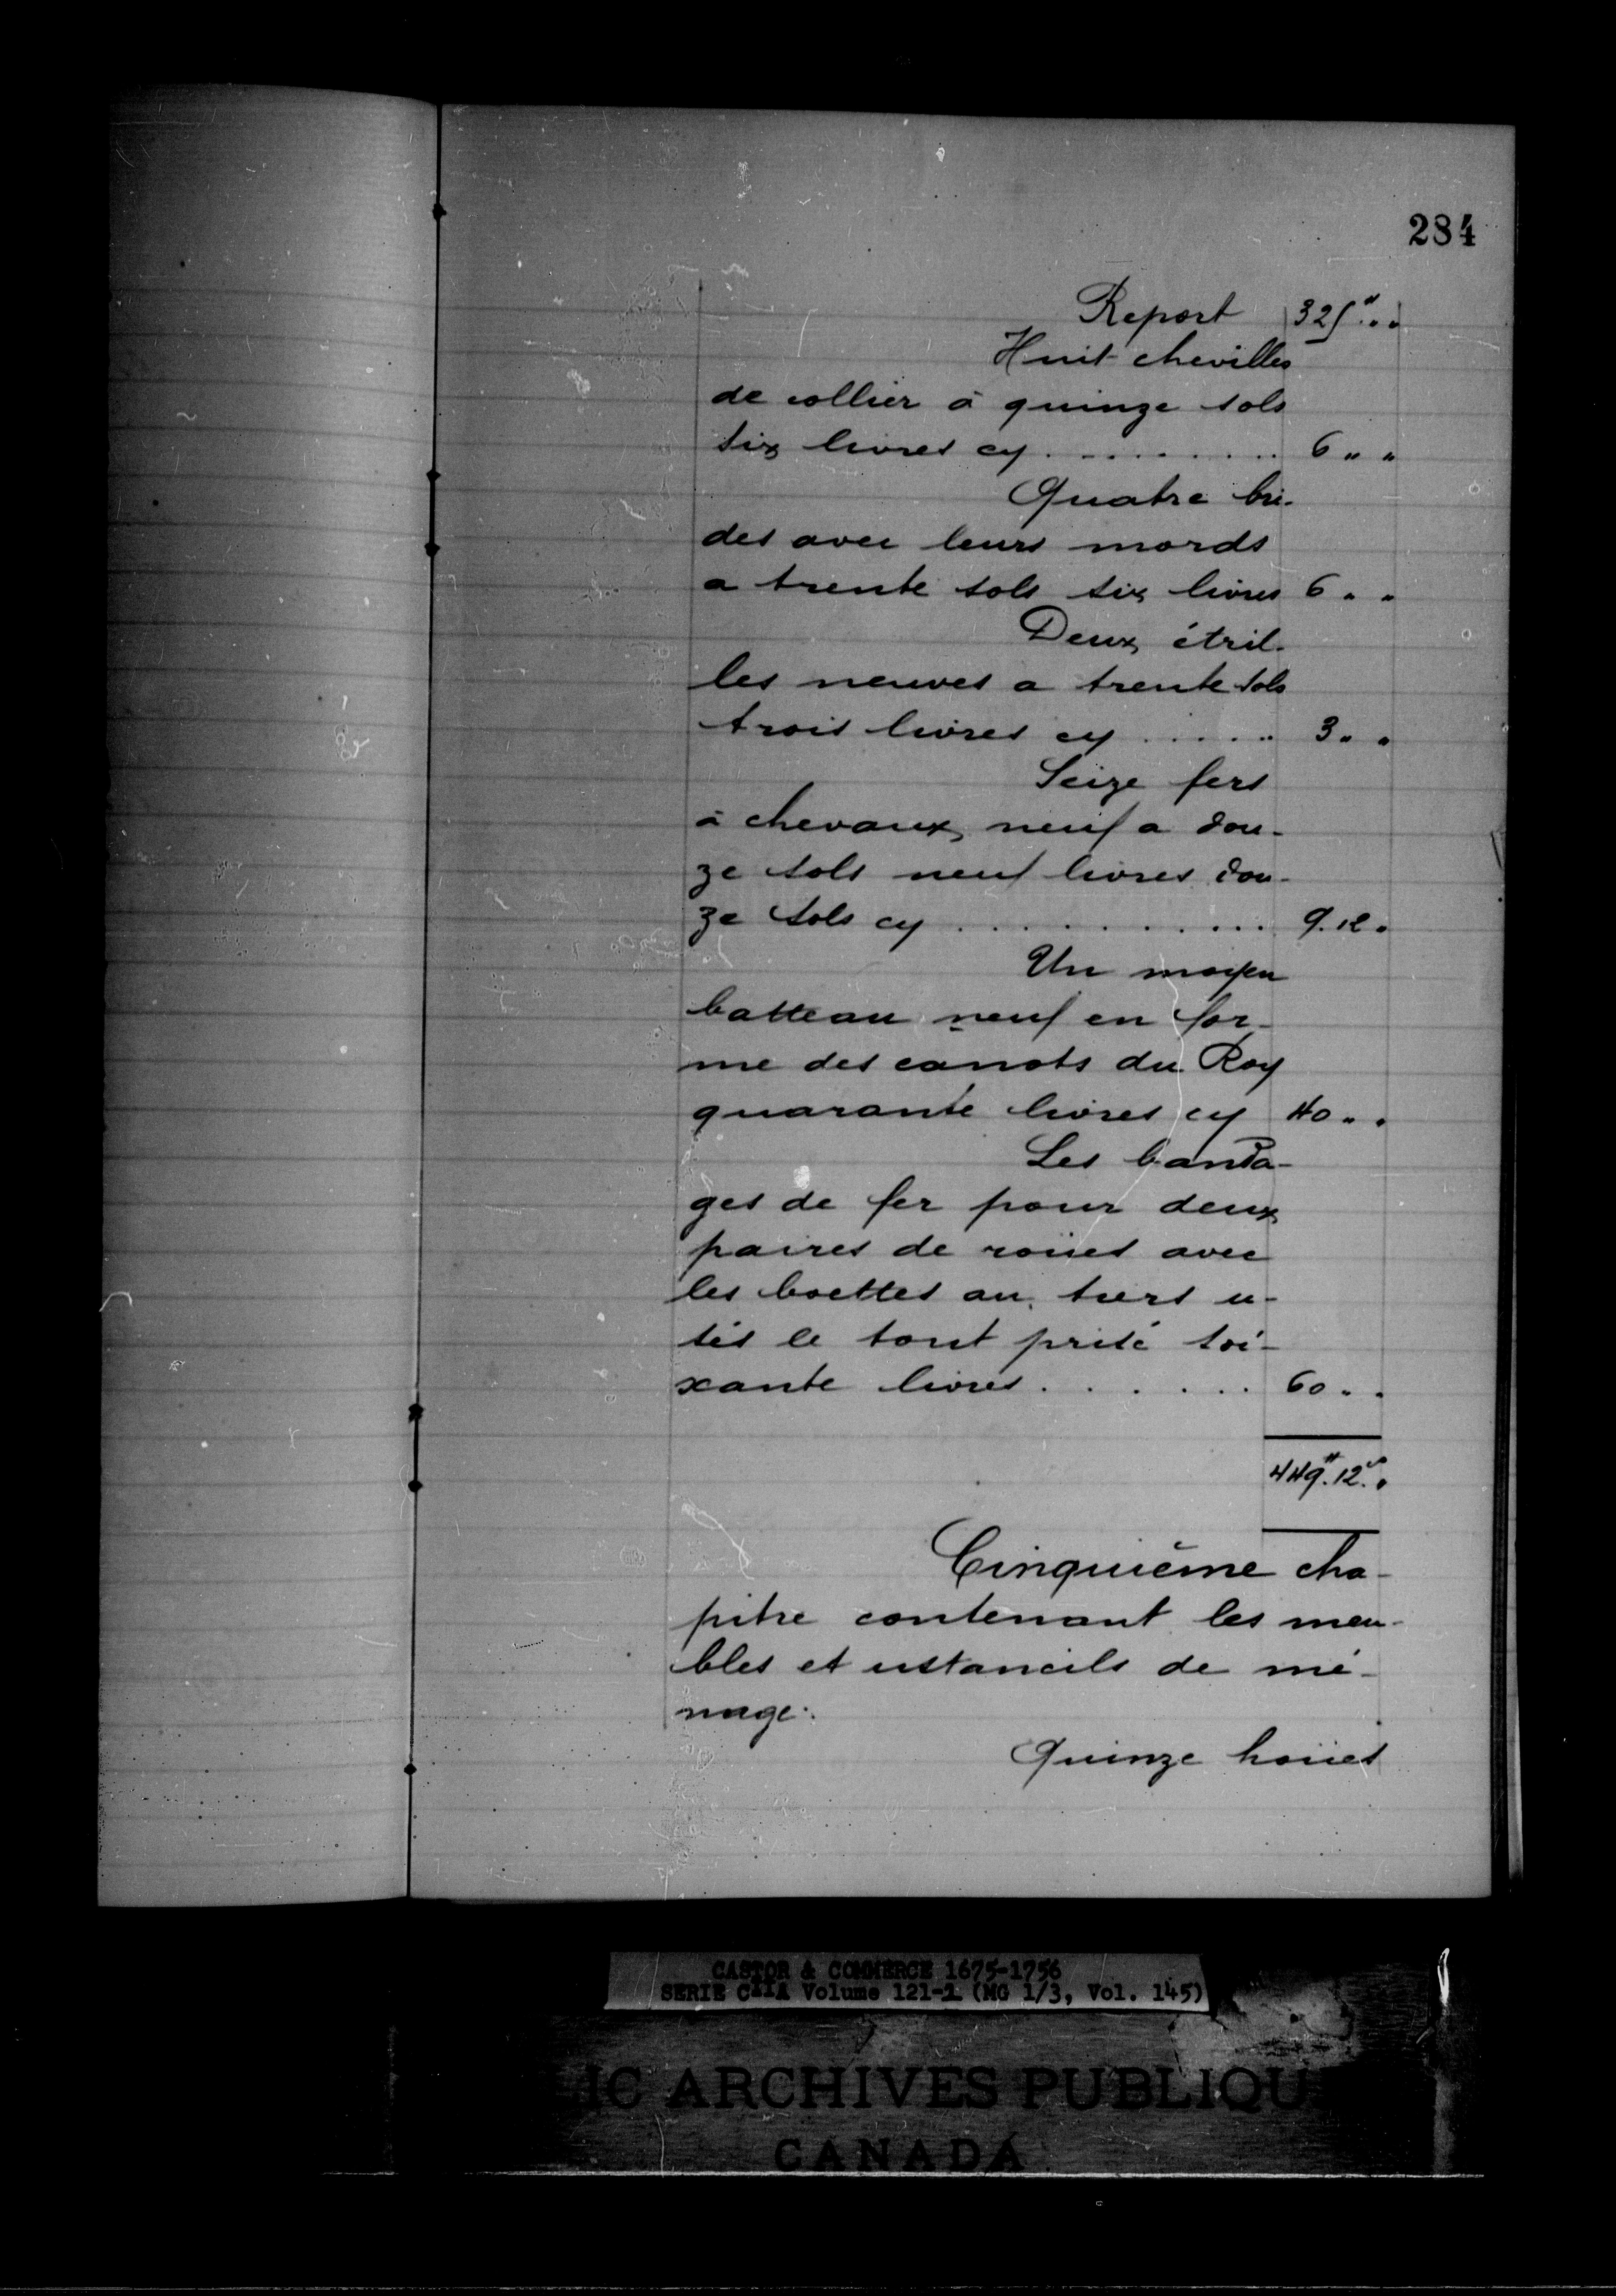 284
Report 325# " "
Huit chevilles
de collier à quinze sols
six livres cy . . . . . . . . . 6 " "
Quatre bri-
des avec leurs mords
a trente sols six livres 6 " "
Deux étril-
les neuves a trente sols
trois livres cy . . . . . 3 " "
Seize fers
à chevaux neuf a dou-
ze sols neuf livres dou-
ze sols cy . . . . . . . . . . . . 9.12 "
Un moyen
batteau neuf en for-
me des canots du Roy
quarante livres cy 40 " "
Les banda-
ges de fer pour deux
paires de roües avec
les boettes au tiers u-
sés le tout prisé soi-
xante livres . . . . . . . 60 " "
449#.12s. "
Cinquième cha-
pitre contenant les meu-
bles et ustancils de mé-
nage.
Quinze hoües
CASTOR & COMMERCE 1675-1756
SERIE C11A Volume 121-1 (MG 1/3, Vol. 145)
IC ARCHIVES PUBLIQU
CANADA